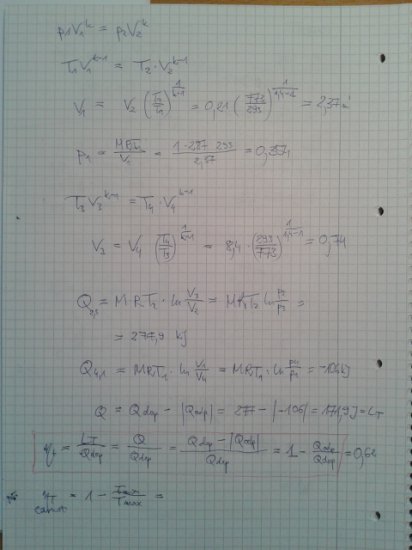 p₁V₁ᵏ = p₂V₂ᵏ
T₁V₁ᵏ⁻¹ = T₂ · V₂ᵏ⁻¹
V₁ = V₂ (T₂/T₁)^(1/(k-1)) = 0,21 (773/293)^(1/(1,4-1)) = 2,37
p₁ = MRT₁/V₁ = 1·287·293/2,37 =
T₃V₃ᵏ⁻¹ = T₄ · V₄ᵏ⁻¹
V₃ = V₄ (T₄/T₃)^(1/(k-1)) = 8,4 · (293/773)^(1/(1,4-1)) = 0,74
Q₂,₃ = M·R·T₂ · ln V₃/V₂ = MRT₂ ln p₂/p₃ =
= 277,9 kJ
Q₄,₁ = MRT₁ · ln V₁/V₄ = MRT₁ · ln p₄/p₁ = -106 kJ
Q = Qdop - |Qodp| = 277 - |-106| = 171,9 J = LT
ηt = LT/Qdop = Q/Qdop = (Qdop - |Qodp|)/Qdop = 1 - Qodp/Qdop = 0,62
ηT = 1 - Tmin/Tmax =